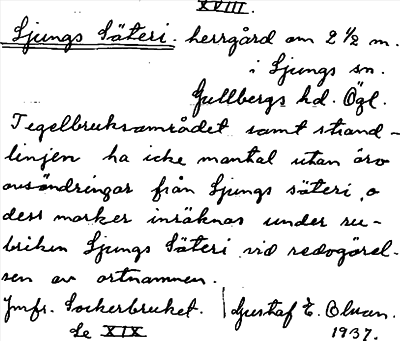 XVIII.
Ljungs Säteri. herrgård om 2 1/2 m.
i Ljungs sn.
Gullbergs hd. Ögl.
Tegelbruksområdet samt strand-
linjen ha icke mantal utan äro
avsöndringar från Ljungs säteri, o
dess marker inräknas under ru-
briken Ljungs Säteri vid redogörel-
sen av ortnamnen.
Jmfr. Sockerbruket. Gustaf E. Olsson.
Se XIX 1937.